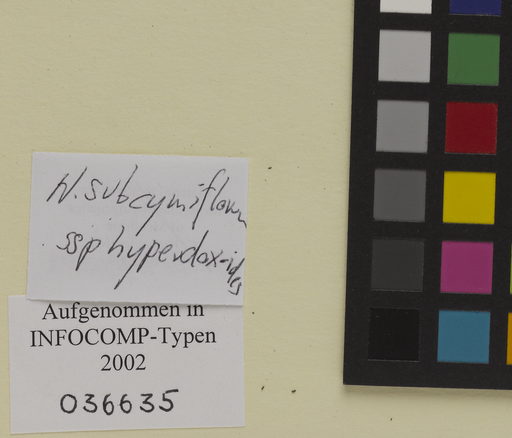 H. subcymiflorum
ssp hyperdoxoides
Aufgenommen in
INFOCOMP-Typen
2002
036635